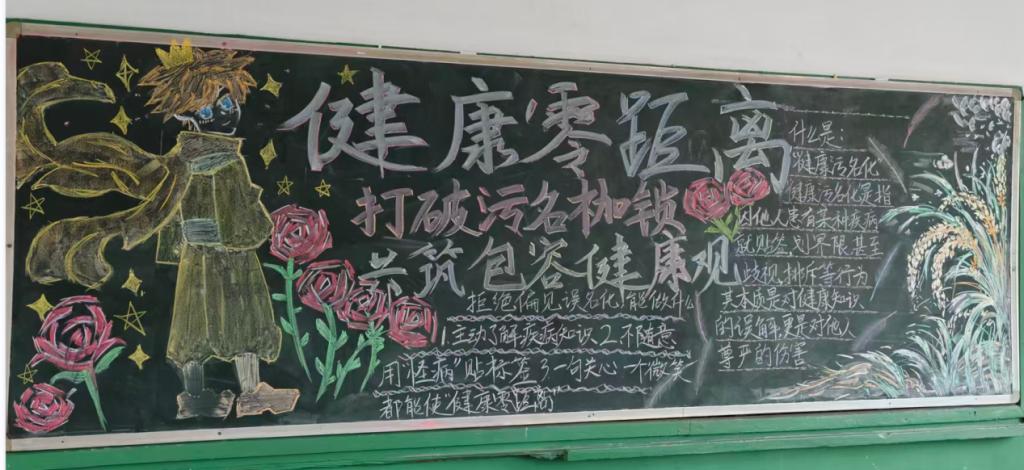 健康零距离
打破污名枷锁
共筑包容健康观
拒绝偏见误名化,能做什么
1.主动了解疾病知识 2.不随意
用"怪病"贴标签 3一句关心一个微笑
都能使"健康零距离
什么是:
"健康污名化
健康污名化是指
因他人患有某种疾病
就贬低,划界限甚至
歧视,排斥等行为
其本质是对健康知识
的误解更是对他人
尊严的伤害